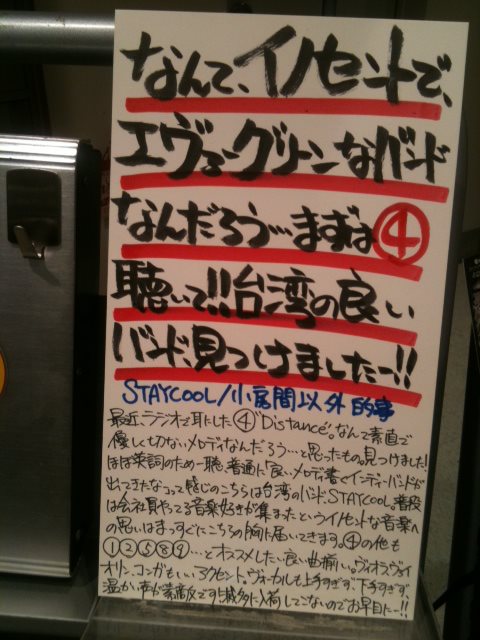 なんて、イノセントで、
エヴァーグリーンなバンド
なんだろう…まずは④
聴いて!!台湾の良い
バンド、見つけましたー!!
STAYCOOL/小房間以外的事
最近、ラジオで耳にした④"Distance"。なんて素直で
優しく切ないメロディなんだろう…と思ったもの。見つけました!
ほぼ英詞のため一聴、普通に「良いメロディ書くインディーバンドが
出てきたなって感じのこちらは台湾のバンド、STAYCOOL。普段
は会社員やってる音楽好きが集まったというイノセントな音楽へ
の思いはまっすぐにこちらの胸に届いてきます。④の他も
①②⑤⑧⑨…とオススメしたい良い曲揃い。ヴィオラ、ヴァイ
オリン、コンガもいいアクセント。ヴォーカルも上手すぎず、下手すぎず、
温かい声が素敵です!滅多に入荷してこないのでお早目にー!!